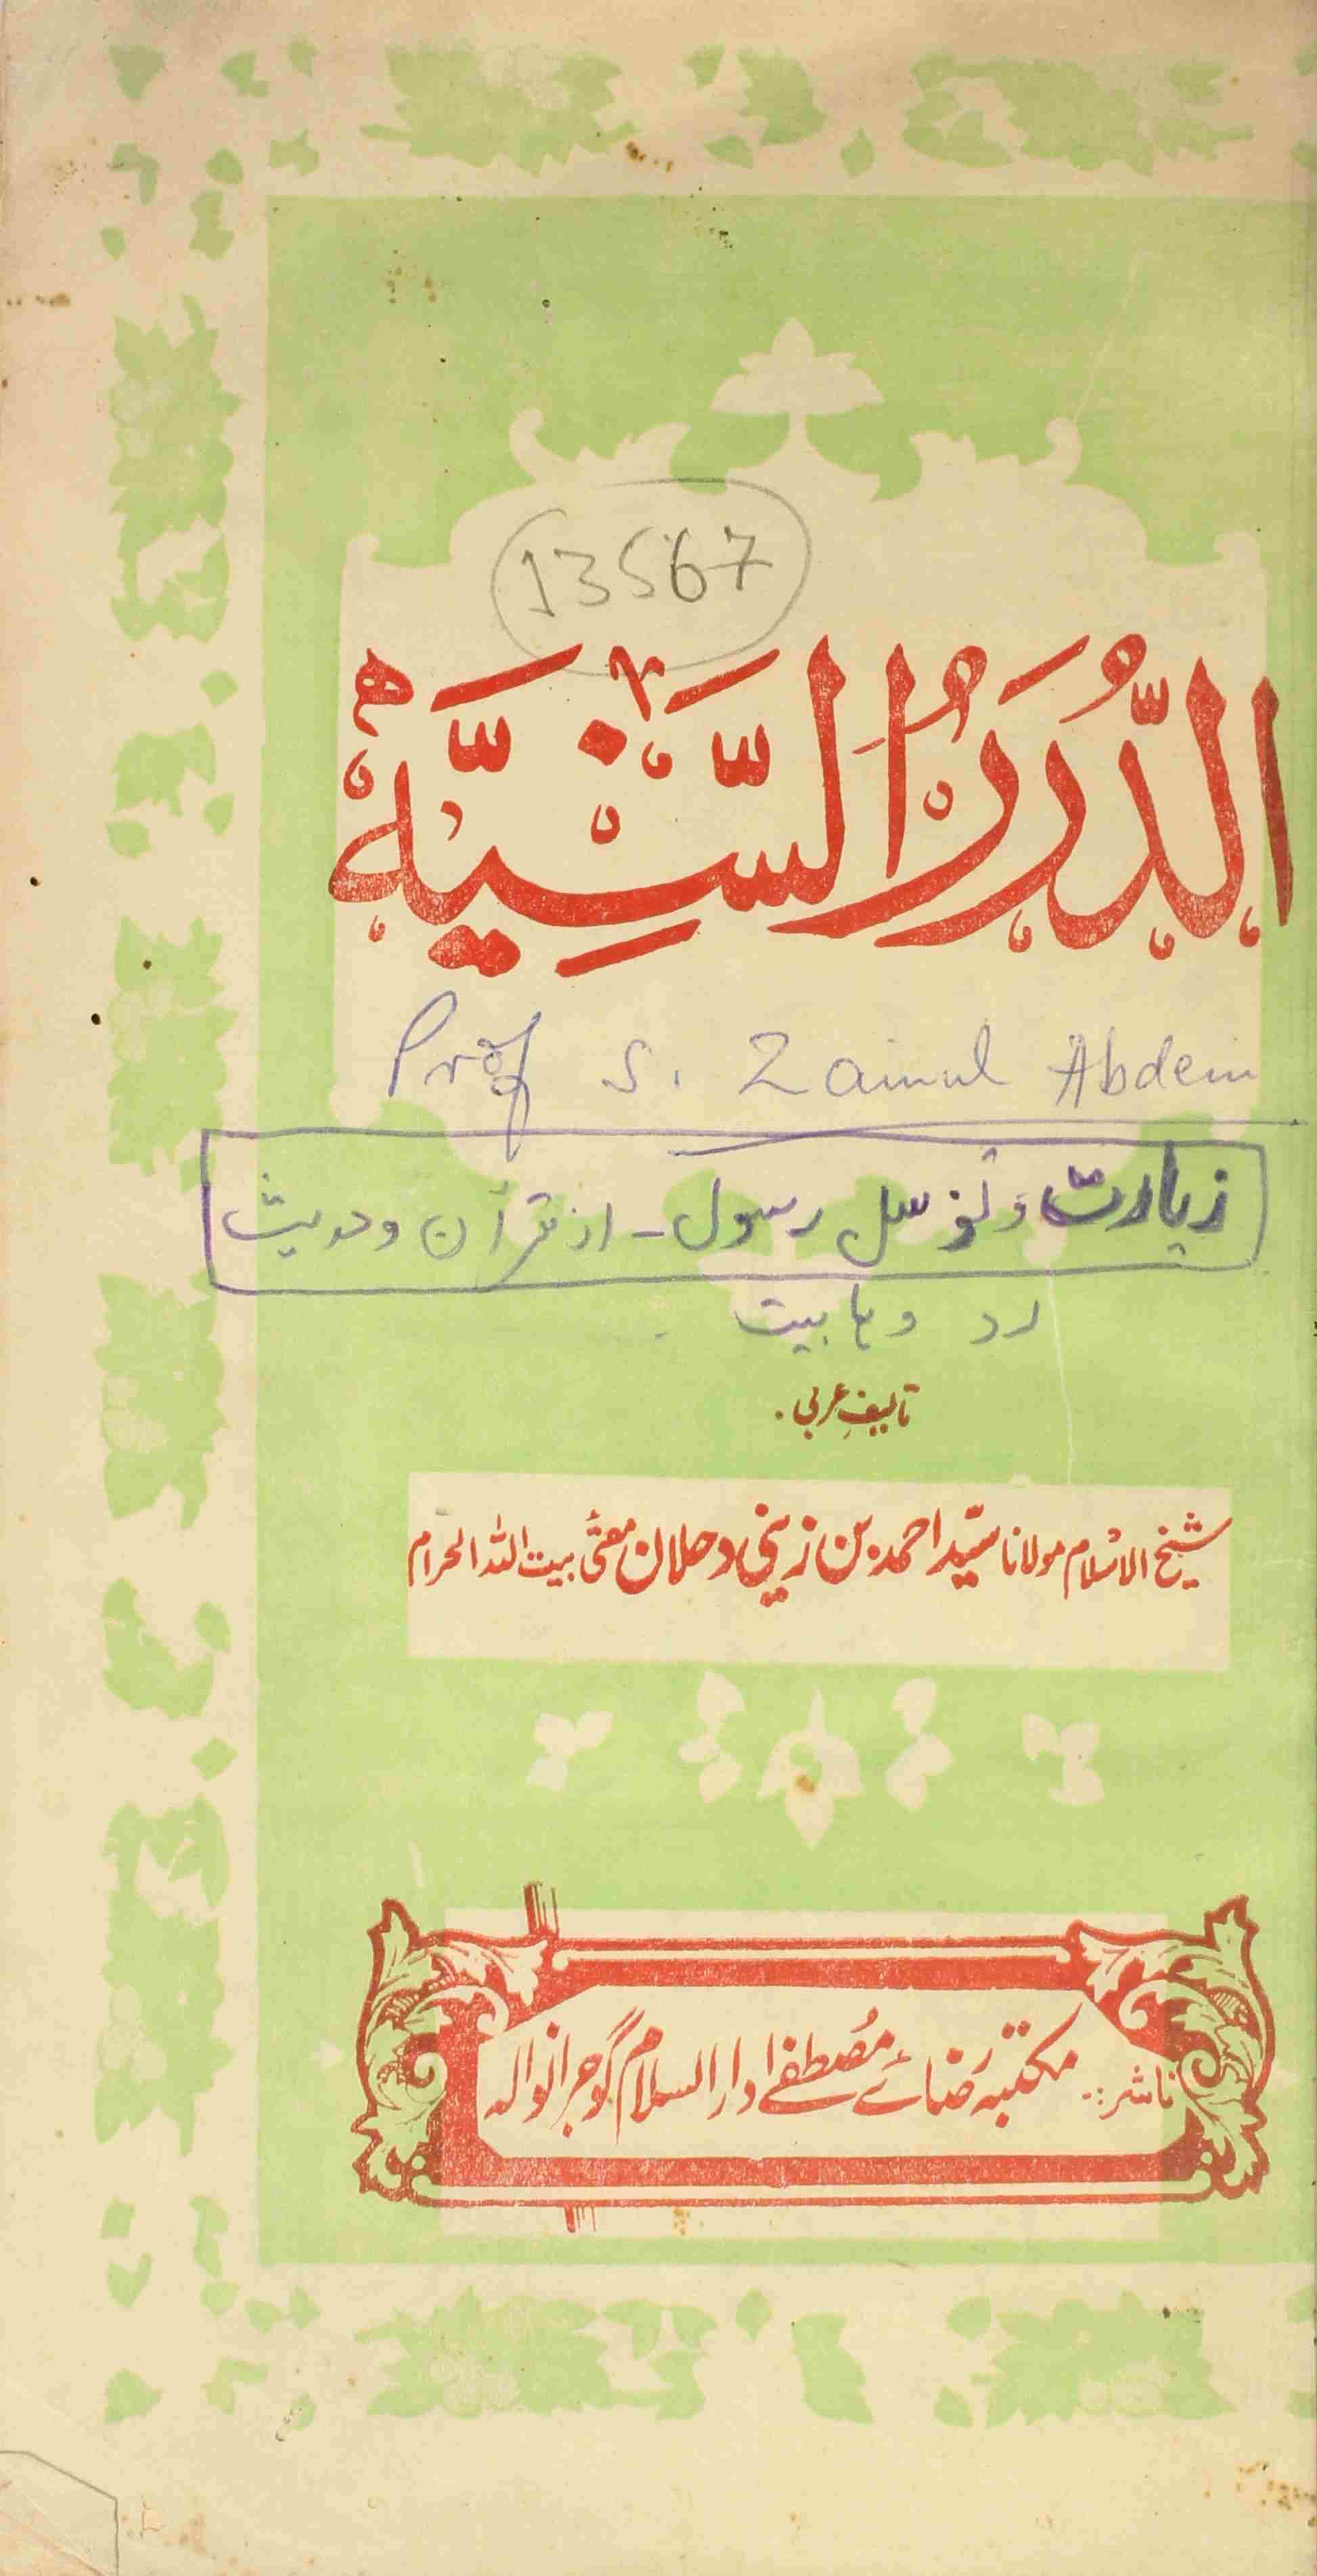 13567
الدُّرَرُ السَّنِيَّةْ
Prof S. Zainul Abdein
زیارت و توسل رسول - از قرآن و حدیث
رد وہابیت
تالیفِ عربی .
شیخ الاسلام مولانا سیّد احمد بن زینی دحلان مفتی بیت اللہ الحرام
ناشر :. مکتبہ رضائے مُصطفےٰ دارالسلام گوجرانوالہ